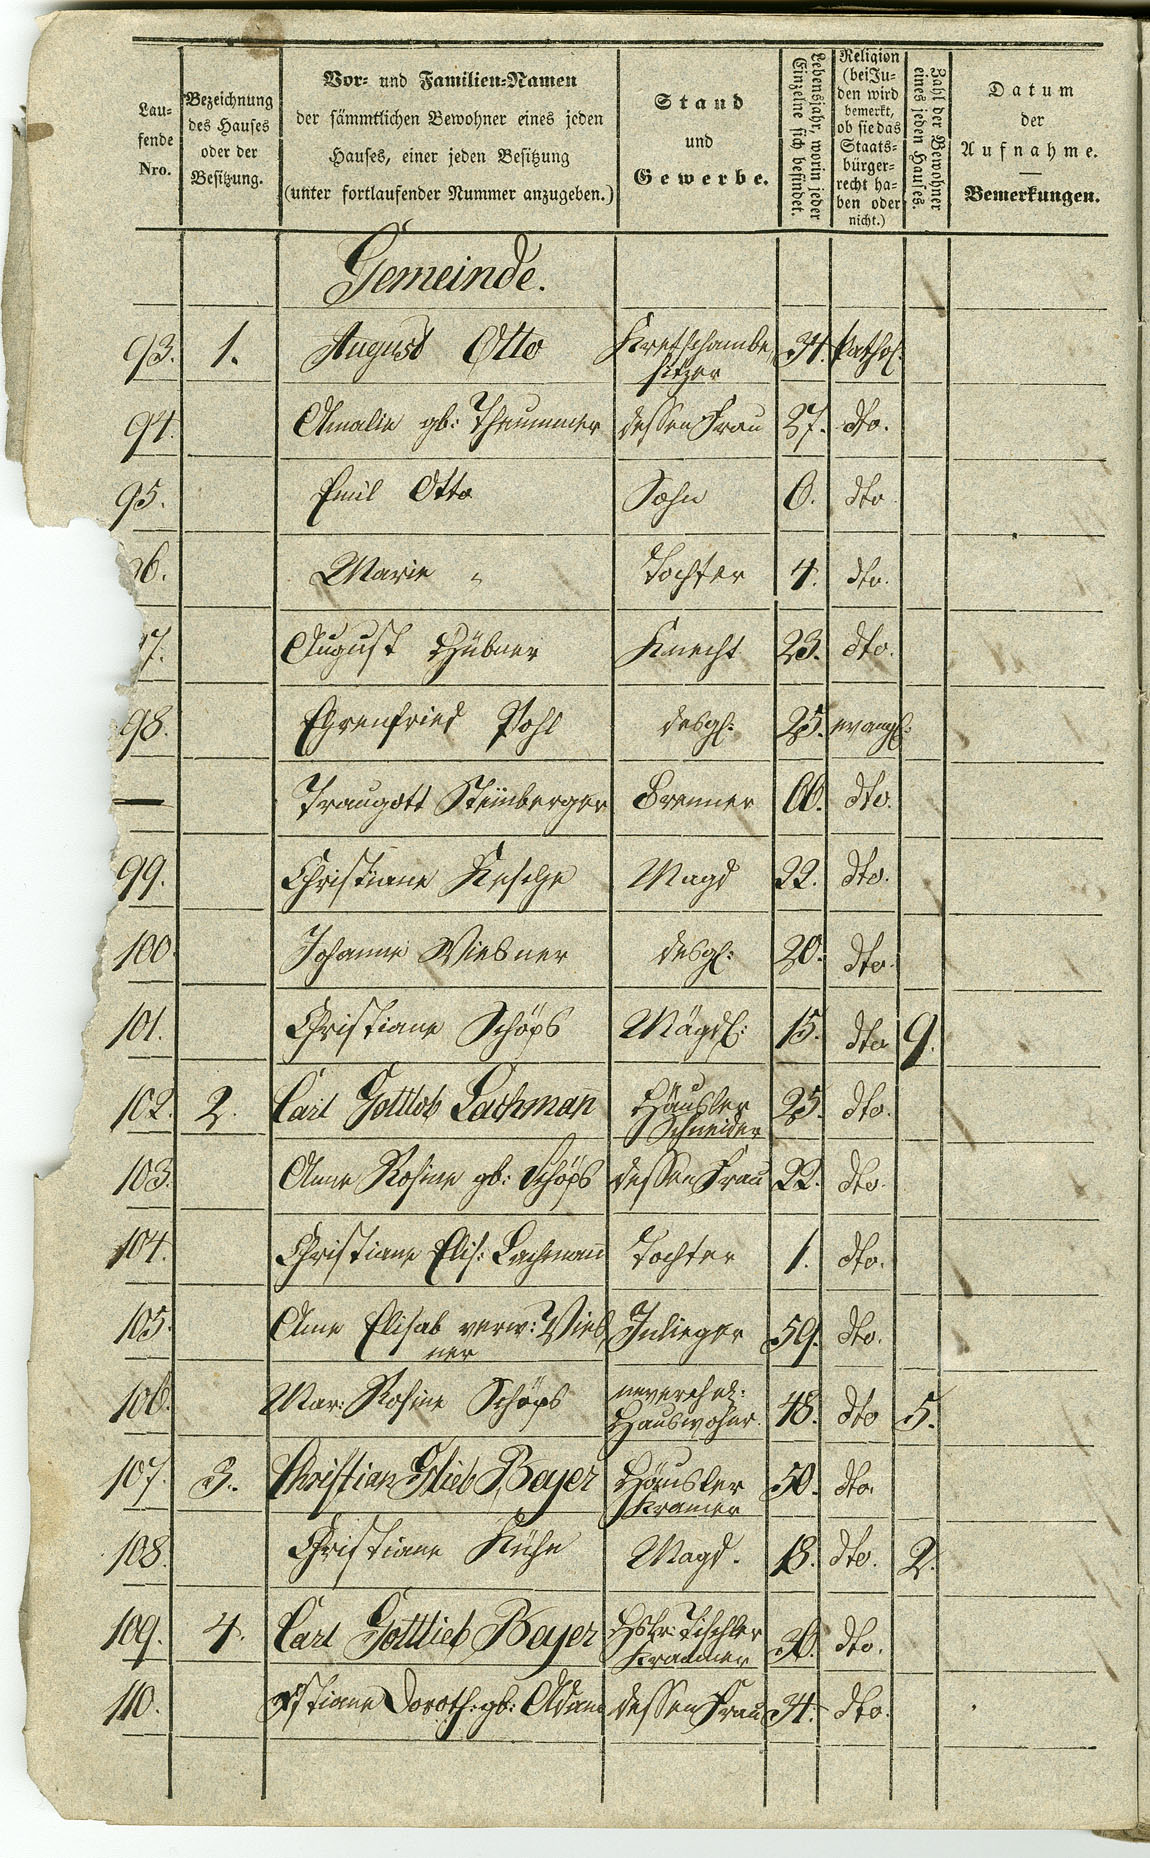 Lau-
fende
Nro.
Bezeichnung
des Hauses
oder der
Besitzung.
Vor- und Familien-Namen
der sämmtlichen Bewohner eines jeden
Hauses, einer jeden Besitzung
(unter fortlaufender Nummer anzugeben.)
Stand
und
Gewerbe.
Lebensjahr, worin jeder
Einzelne sich befindet.
Religion
(bei Ju-
den wird
bemerkt,
ob sie das
Staats-
bürger-
recht ha-
ben oder
nicht.)
Zahl der Bewohner
eines jeden Hauses.
Datum
der
Aufnahme.
Bemerkungen.
Gemeinde.
93. 1. August Otto Kretschambe- 34. kathol:
sitzer
94. Amalie gb: dessen Frau 27. dto.
95. Emil Otto Sohn 6. dto
96. Marie " Tochter 4. dto.
97. August Hübner Knecht 23. dto.
98. Ehrenfried Pohl desgl: 25. evangl:
— Traugott Steinberger Brenner dto.
99. Christiane Magd 22. dto.
100 Johanne Wiesner desgl: 20. dto.
101. Christiane Schöps Mägdl: 15. dto 9.
102. 2. Carl Gottlob Lachmañ Häusler 25. dto.
Schneider
103. Anne Rosine gb: Schöps dessen Frau 22. dto.
104. Christiane Elis: Lachmañ Tochter 1. dto.
105. Anne Elisab verw: Wies Inlieger 59. dto.
ner
106. Mar: Rosine Schöps unverehel: 48. dto 5.
Hauswohner.
107. 3. Christian Glieb Beyer Häusler 50. dto.
Kramer
108. Christiane Kühn Magd. 18. dto. 2.
109. 4. Carl Gottlieb Beyer Hslr: Tischler dto.
Kramer
110. Doroth: gb: Adam dessen Frau 34. dto.